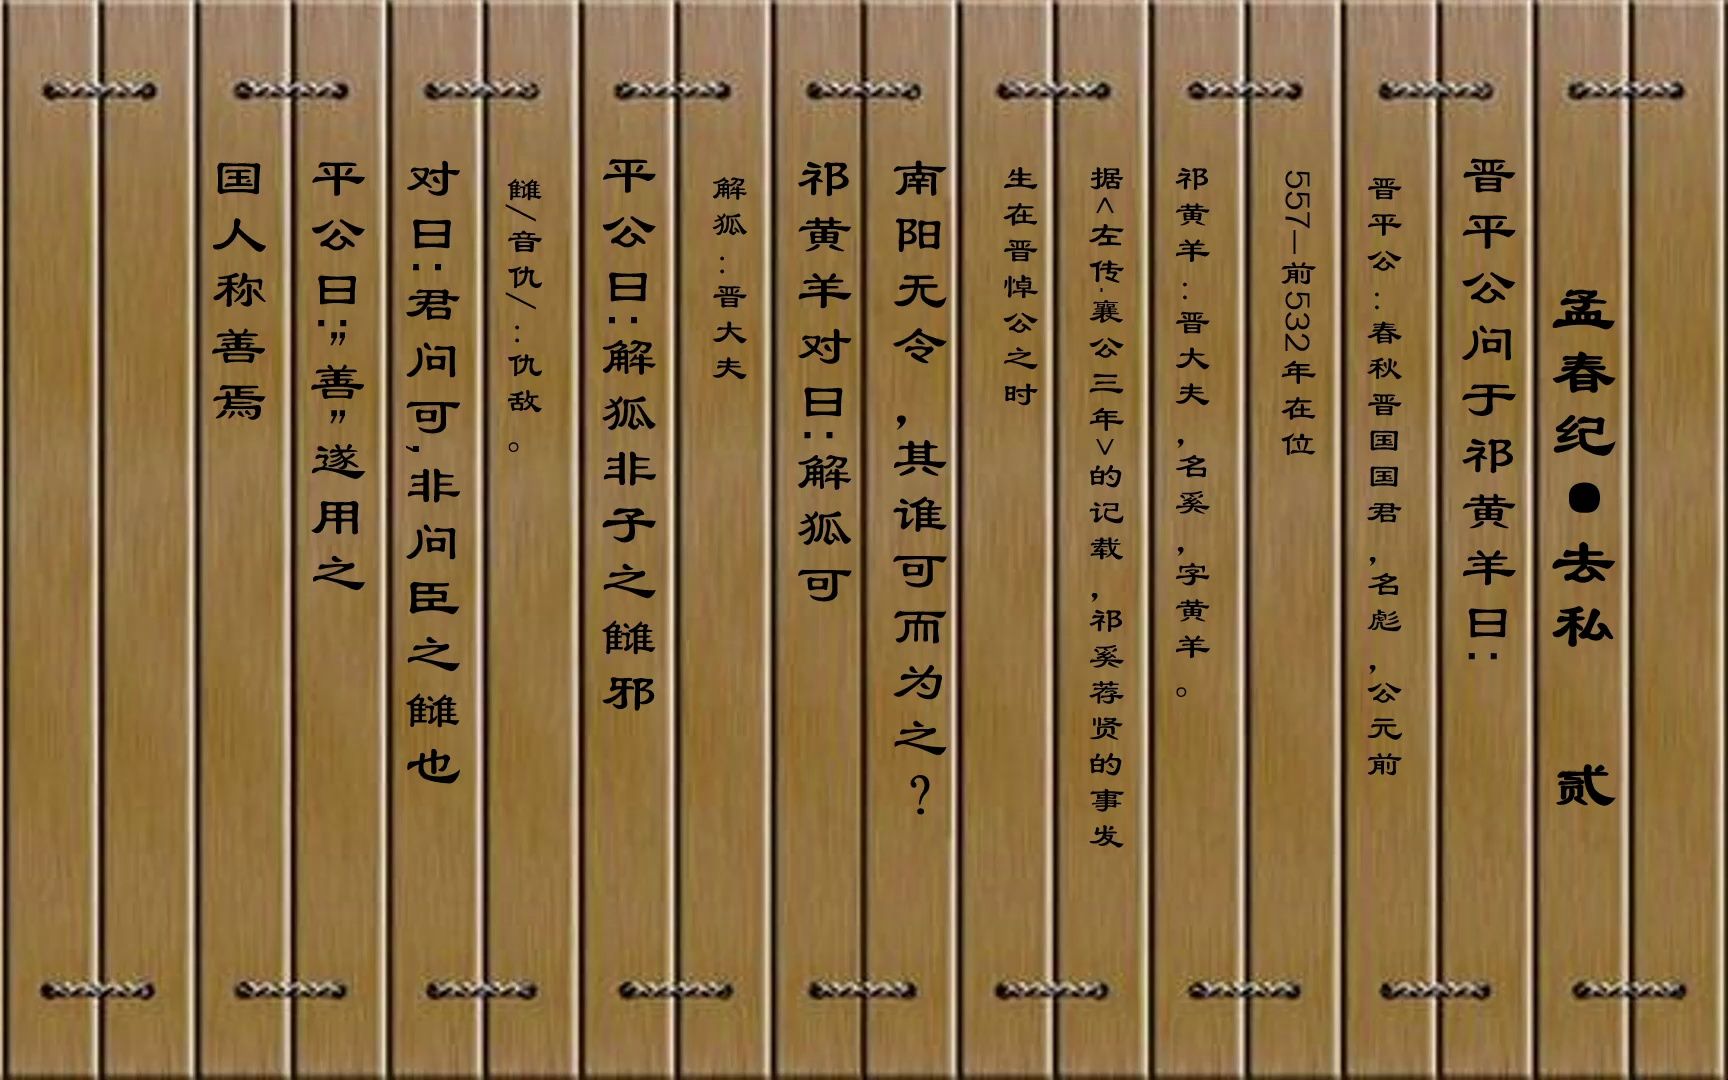 孟春纪•去私 贰
晋平公问于祁黄羊曰:
晋平公:春秋晋国国君,名彪,公元前
557—前532年在位
祁黄羊:晋大夫,名奚,字黄羊。
据<左传·襄公三年>的记载,祁奚荐贤的事发
生在晋悼公之时
南阳无令,其谁可而为之?
祁黄羊对曰:解狐可
解狐:晋大夫
平公曰:解狐非子之雠邪
雠/音仇/:仇敌。
对曰:君问可,非问臣之雠也
平公曰:”善”遂用之
国人称善焉